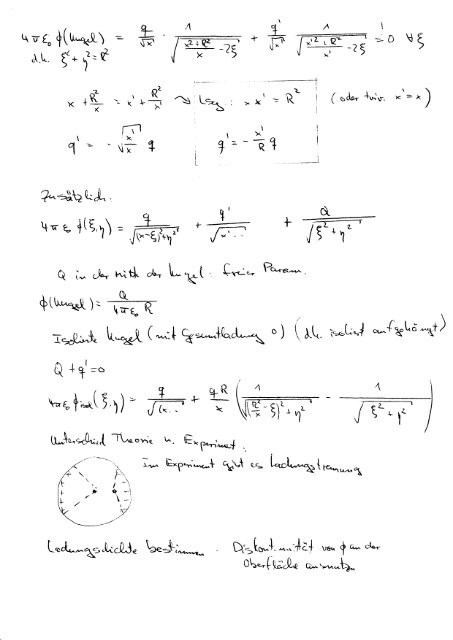 4πε₀ ϕ(Kugel) = q/√x · 1/√((x²+R²)/x − 2ξ) + q'/√x' · 1/√((x'²+R²)/x' − 2ξ) =! 0 ∀ξ
d.h. ξ²+η²=R²
x + R²/x = x' + R²/x' ⤳ Lsg.: x x' = R² (oder triv. x'=x)
q' = −√(x'/x) q    q' = −x'/R q
Zusätzlich:
4πε₀ ϕ(ξ,η) = q/√((x−ξ)²+η²) + q'/√(x'...) + Q/√(ξ²+η²)
Q in der Mitte der Kugel: freier Param.
ϕ(Kugel) = Q/(4πε₀ R)
Isolierte Kugel (mit Gesamtladung 0) (d.h. isoliert aufgehängt)
Q + q' = 0
4πε₀ ϕ (ξ,η) = q/√((x..) + qR/x (1/√((R²/x − ξ)²+η²) − 1/√(ξ²+η²))
Unterschied Theorie u. Experiment:
Im Experiment gibt es Ladungstrennung
Ladungsdichte bestimmen. Diskontinuität von ϕ an der
Oberfläche ausnutzen